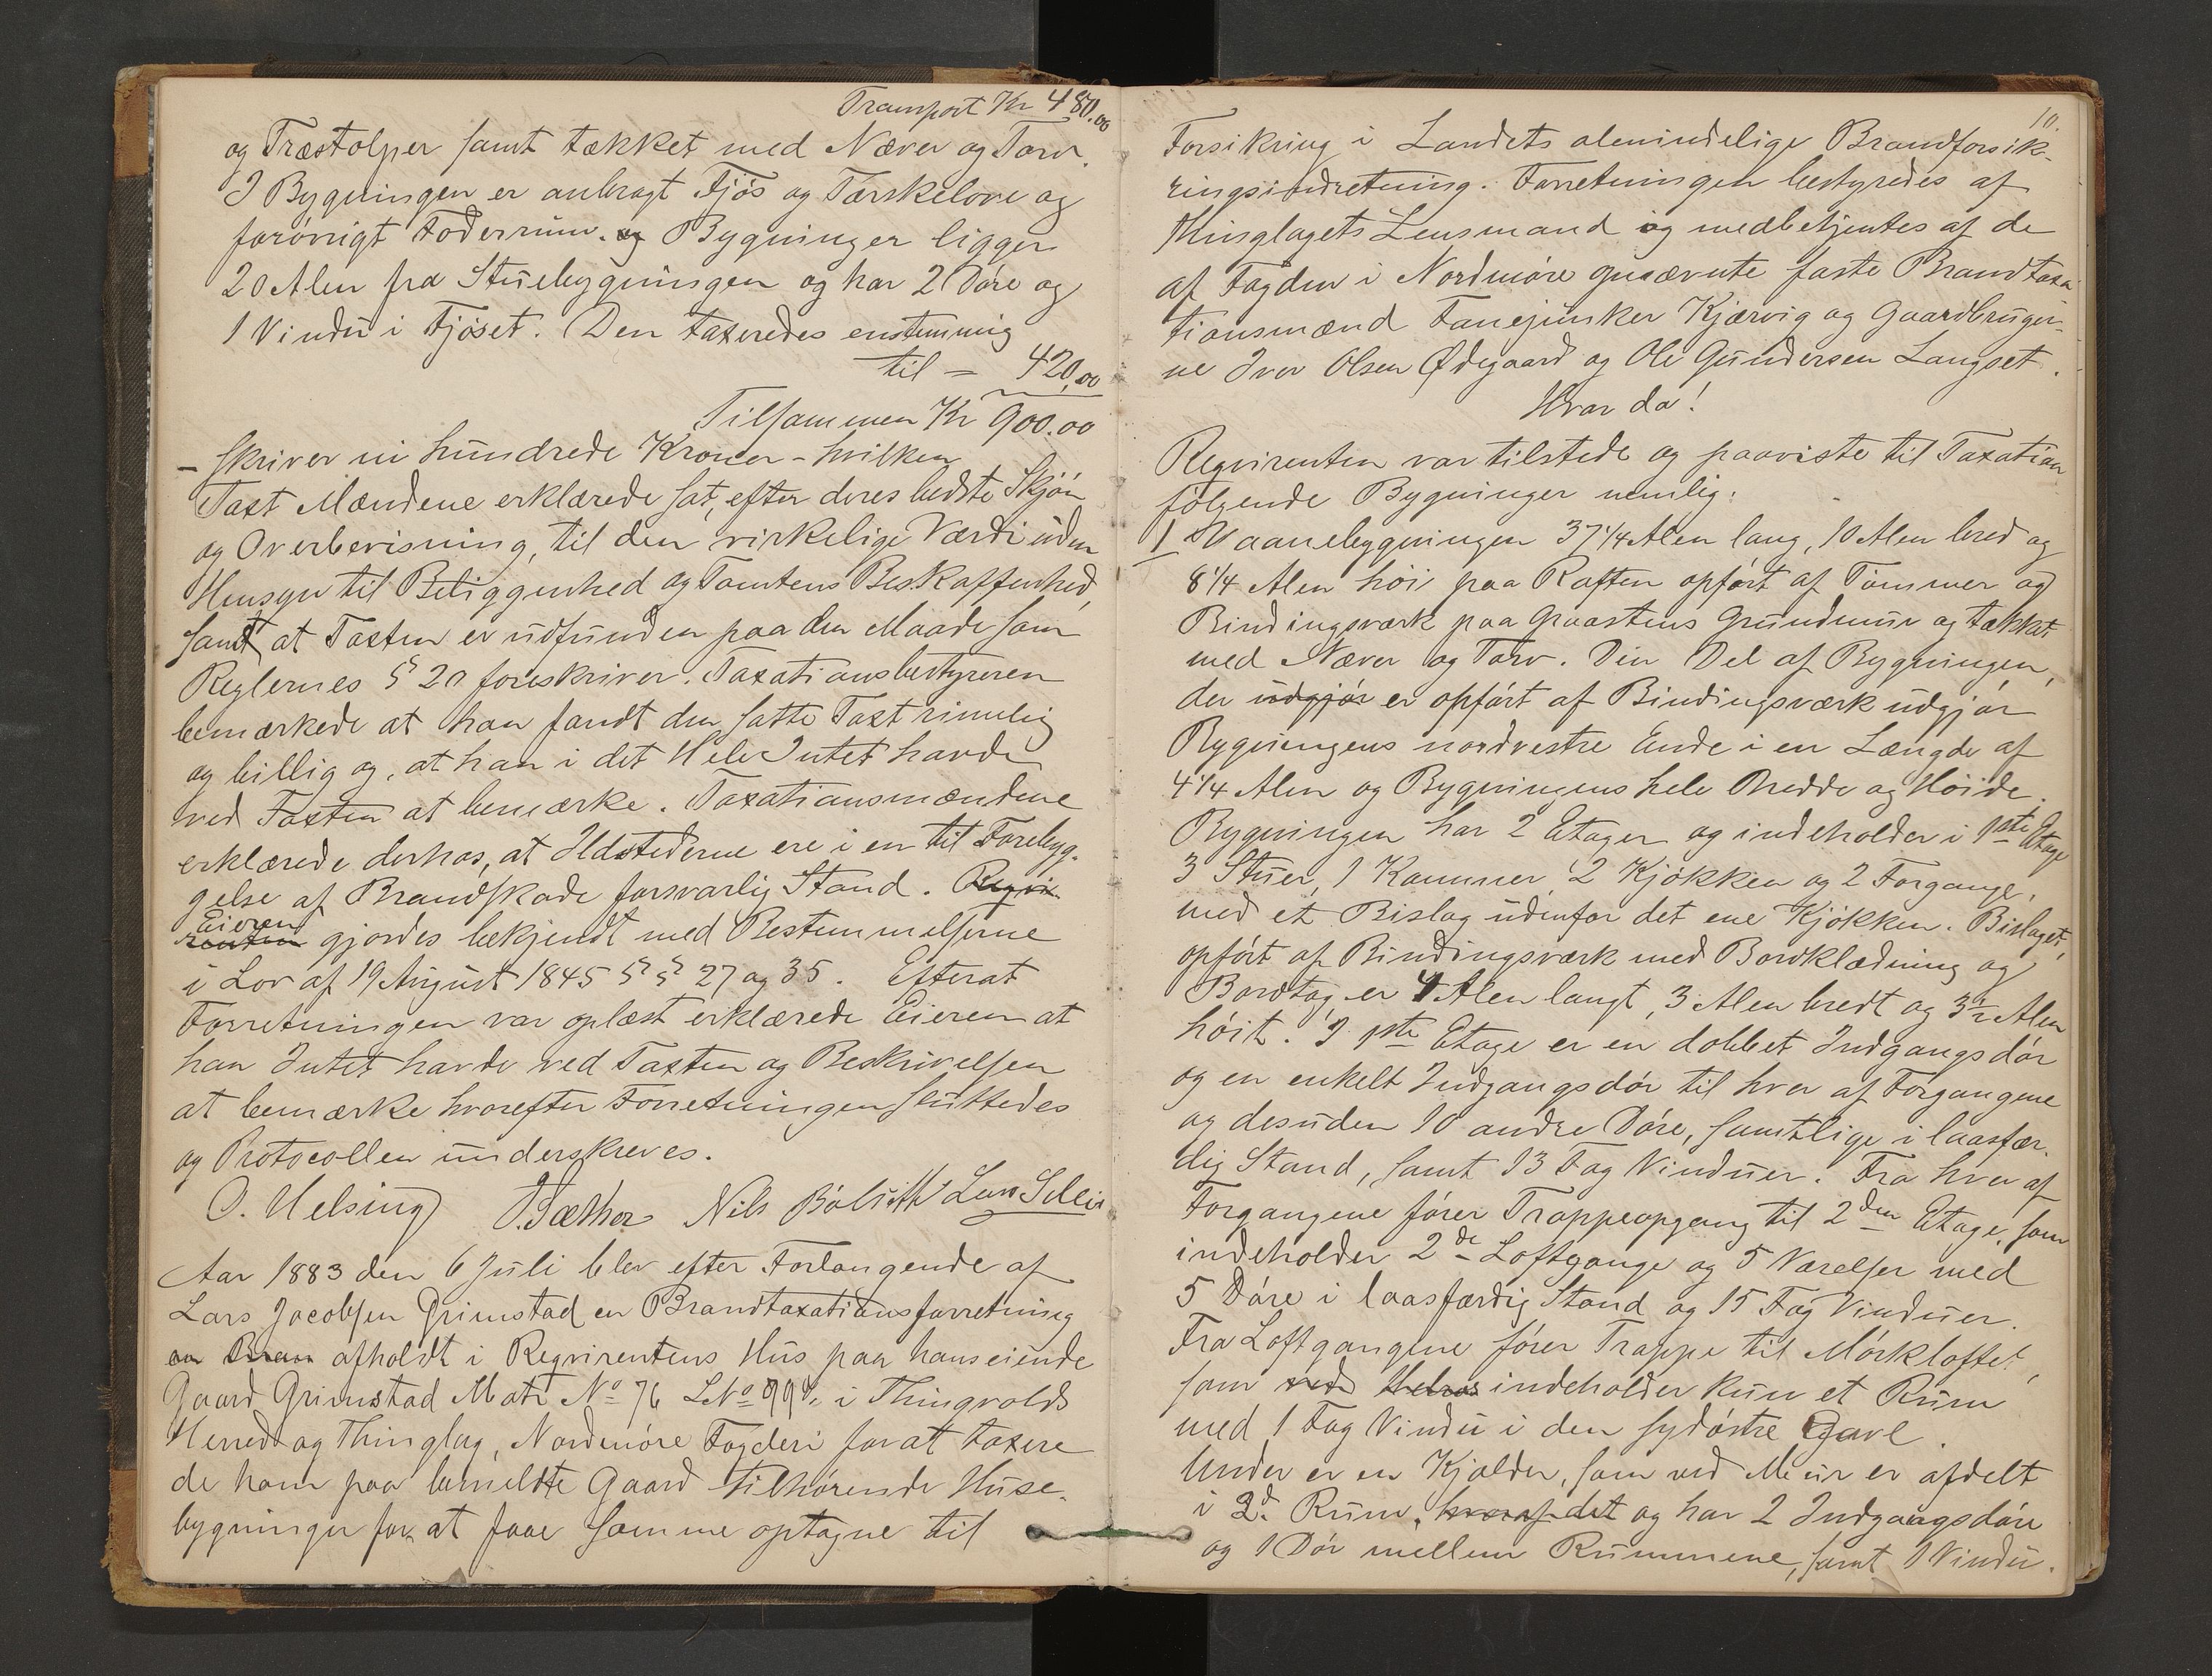 Transport Kr 480.00
og Træstolper samt tækket med Næver og Torv.
I Bygningen er anbragt Fjøs og Tærskelove og
forøvrigt Foderrum. og Bygninger ligger
20 Alen fra Stuebygningen og har 2 Døre og
1 Vindu i Fjøset. Den taxeredes enstemmig
til = 420,00
Tilsammen Kr 900.00
– skriver ni hundrede Kroner – hvilken
Taxt Mændene erklærede sat, efter deres bedste Skjøn
og Overbevisning, til den virkelige Værdi uden
Hensyn til Beliggenhed og Tomtens Beskaffenhed,
samt at Taxten er udfunden paa den Maade som
Reglernes § 20 foreskriver. Taxationsbestyreren
bemærkede at han fandt den satte Taxt rimelig
og billig og, at han i det Hele Intet havde
ved Taxten at bemærke. Taxationsmændene
erklærede derhos, at Ildstederne ere i en til Forebyg-
gelse af Brandskade forsvarlig Stand. Reqvi-
Eieren
renten gjordes bekjendt med Bestemmelserne
i Lov af 19 August 1845 §§ 27 og 35. Efterat
Forretningen var oplæst erklærede Eieren at
han Intet havde ved Taxten og Beskrivelsen
at bemærke hvorefter Forretningen sluttedes
og Protocollen underskreves.
O. Helsing J. Sæther Nils Bølseth Lars
Aar 1883 den 6 Juli blev efter Forlangende af
Lars Jacobsen Grimstad en Brandtaxationsforretning
en Bran afholdt i Reqvirentens Hus paa hans eiende
Gaard Grimstad Matr No 76 LNo 99 i Thingvolds
Herred og Thinglag, Nordmøre Fogderi for at taxere
de ham paa bemeldte Gaard tilhørende Huse-
bygninger for at faae samme optagne til
10.
Forsikring i Landets almindelige Brandforsik-
ringsindretning. Forretningen bestyredes af
Thinglagets Lensmand og medbetjentes af de
af Fogden i Nordmøre opnævnte faste Brandtaxa-
tionsmænd Fanejunker Kjærvig og Gaardbruger-
ne Iver Olsen Ødegaard og Ole Gundersen Langset.
Hvor da!
Reqvirenten var tilstede og paaviste til Taxation
følgende Bygninger nemlig:
1 Vaanebygningen 37 1/4 Alen lang, 10 Alen bred og
8 1/4 Alen høi paa Raften opført af Tømmer og
Bindingsværk paa Graastens Grundmur og tækket
med Næver og Torv. Den Del af Bygningen,
der udgjør er opført af Bindingsværk udgjør
Bygningens nordvestre Ende i en Længde af
4 1/4 Alen og Bygningens hele Bredde og Høide.
Bygningen har 2 Etager og indeholder i 1ste Etage
3 Stuer, 1 Kammer, 2 Kjøkken og 2 Forgange,
med et Bislag udenfor det ene Kjøkken. Bislaget,
opført af Bindingsværk med Bordklædning og
Bordtag er 4 Alen langt, 3 Alen bredt og 3 1/2 Alen
høit. I 1ste Etage er en dobbet Indgangsdør
og en enkelt Indgangsdør til hver af Forgangene
og desuden 10 andre Døre, samtlige i laasfær-
dig Stand, samt 13 Fag Vinduer. Fra hver af
Forgangene fører Trappeopgang til 2den Etage, som
indeholder 2de Loftgange og 5 Værelser med
5 Døre i laasfærdig Stand og 15 Fag Vinduer.
Fra Loftgangene fører Trappe til Mørkloftet,
som indeholder kun et Rum
med 1 Fag Vindu i den sydøstre Gavl.
Under er en Kjælder, som ved Mur er afdelt
i 2d. Rum, hvoraf det og har 2 Indgaagsdøre
og 1 Dør mellem Rummene, samt 1 Vindu.